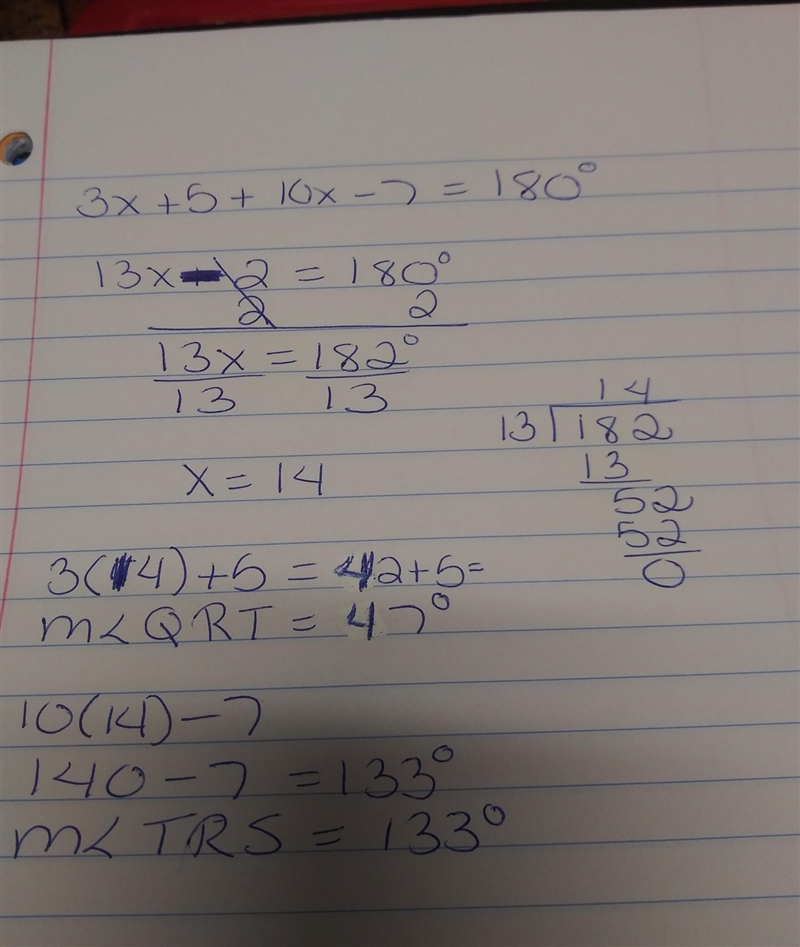 3x + 5 + 10x - 7 = 180°
13x - 2 = 180°
2 2
13x = 182°
13 13
14
13 182
13
52
52
0
x = 14
3(14) + 5 = 42 + 5 =
m< QRT = 47°
10(14) - 7
140 - 7 = 133°
m< TRS = 133°